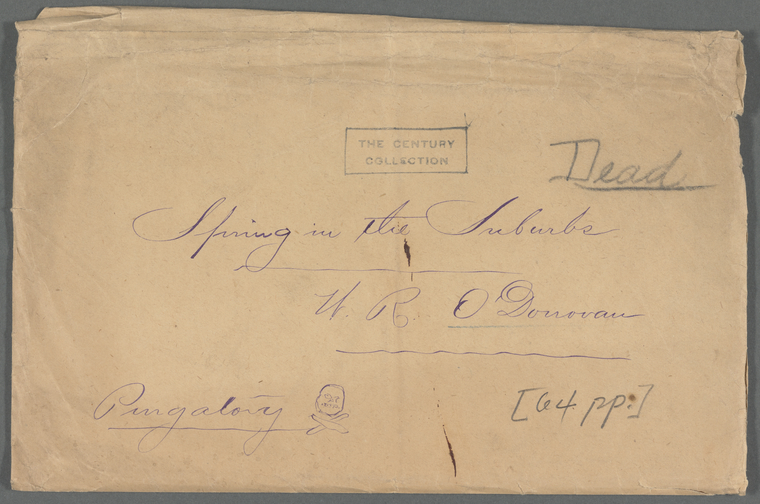 THE CENTURY
COLLECTION
Dead
Spring in the Suburbs
W. R. O'Donovan
Purgatory
[64 pp.]